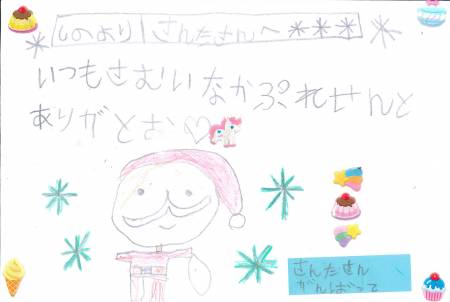 しのより さんたさんへ
いつもさむいなかぷれせんと
ありがとお♡
さんたさん
がんばって